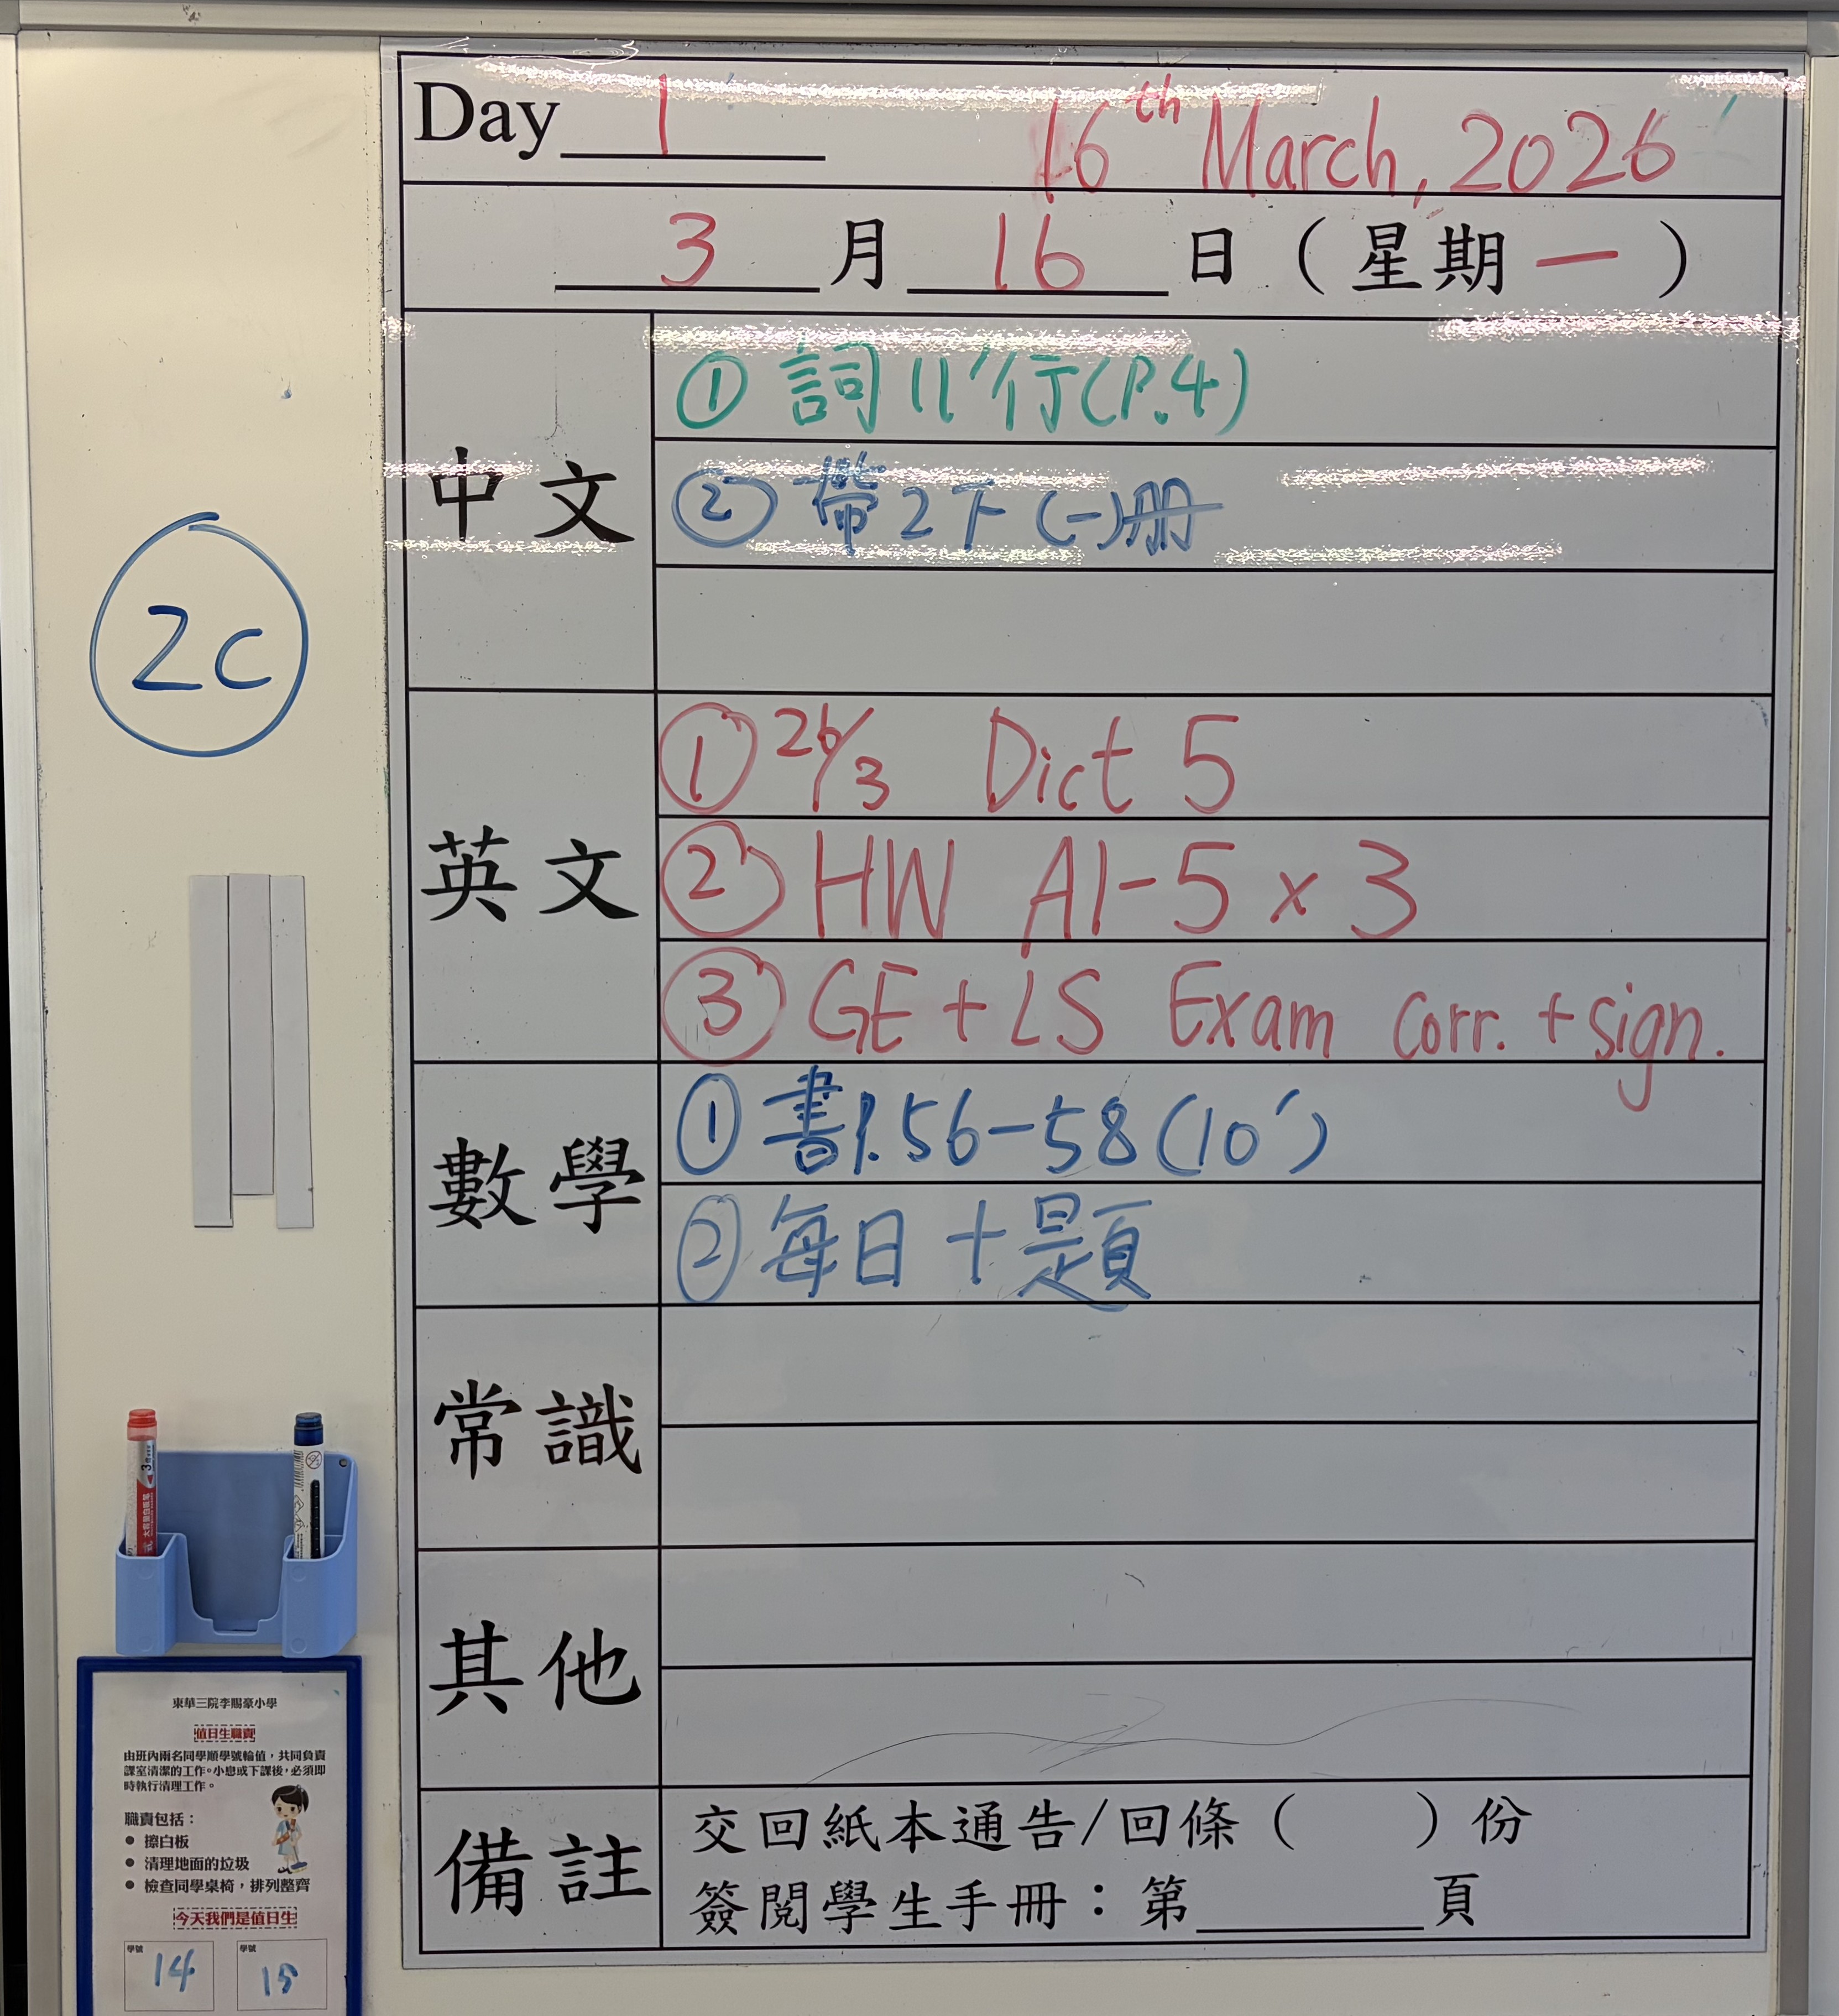 Day 1 16th March, 2026
3 月 16 日（星期一）
中文
① 詞11'行(P.4)
② 帶2下(一)册
2C
英文
① 26/3 Dict 5
② HW A1-5 x 3
③ GE + LS Exam corr. + sign.
數學
① 書P.56-58(10')
② 每日十題
常識
其他
備註
交回紙本通告/回條（ ）份
簽閱學生手冊：第 頁
東華三院李賜豪小學
值日生職責
由班內兩名同學順學號輪值，共同負責
課室清潔的工作。小息或下課後，必須即
時執行清理工作。
職責包括：
● 擦白板
● 清理地面的垃圾
● 檢查同學桌椅，排列整齊
今天我們是值日生
學號 14
學號 15